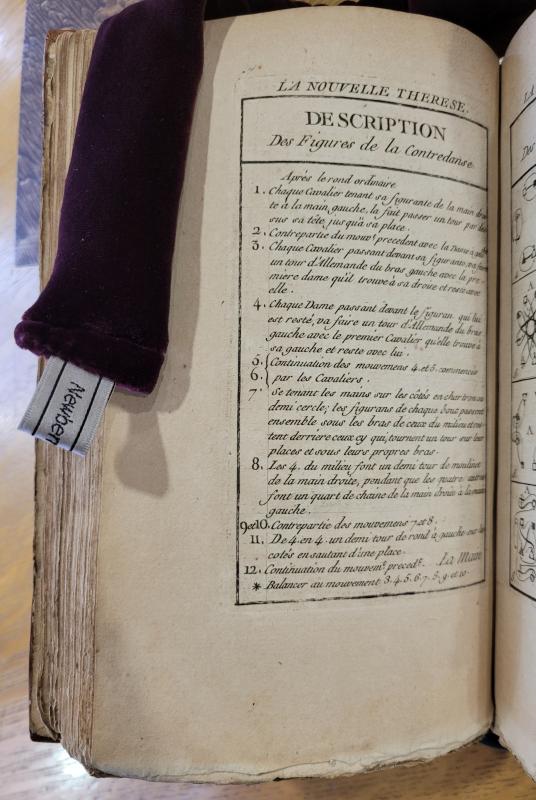 LA NOUVELLE THERESE.
DESCRIPTION
Des Figures de la Contredanse
Après le rond ordinaire
1. Chaque Cavalier tenant sa figurante de la main
te à la main gauche, la fait passer un tour par des
sus sa tête, jusqu'à sa place.
2. Contrepartie du mouvt precedent avec la Dame à
3. Chaque Cavalier passant devant sa figurante, va faire
un tour d'Allemande du bras gauche avec la pre
miere dame qu'il trouve à sa droite et reste avec
elle.
4. Chaque Dame passant devant le figuran qui lui
est resté, va faire un tour d'Allemande du bras
gauche avec le premier Cavalier qu'elle trouve à
sa gauche et reste avec lui.
5. Continuation des mouvemens 4. et 3. commencer
6. par les Cavaliers.
7. Se tenant les mains sur les côtés en char
demi cercle; les figurans de chaque bout passent
ensemble sous les bras de ceux du milieu et
tent derriere ceux cy qui, tournent un tour sur leurs
places et sous leurs propres bras.
8. Les 4. du milieu font un demi tour de moulinet
de la main droite, pendant que les quatre autres
font un quart de chaine de la main droite à la main
gauche.
9 et 10. Contrepartie des mouvemens 7 et 8.
11. De 4 en 4 un demi tour de rond à gauche sur
cotés en sautant d'une place.
12. Continuation du mouvemt precedt. La Main
* Balancer au mouvement 3. 4. 5. 6. 7. 8. 9. et 10
Newber
LA
Des
A
A